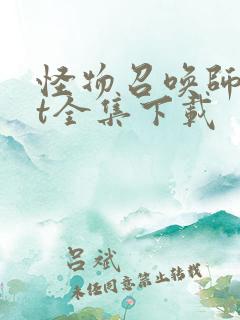 怪物召唤师t
t全集下载
吕斌
未经同意禁止转载